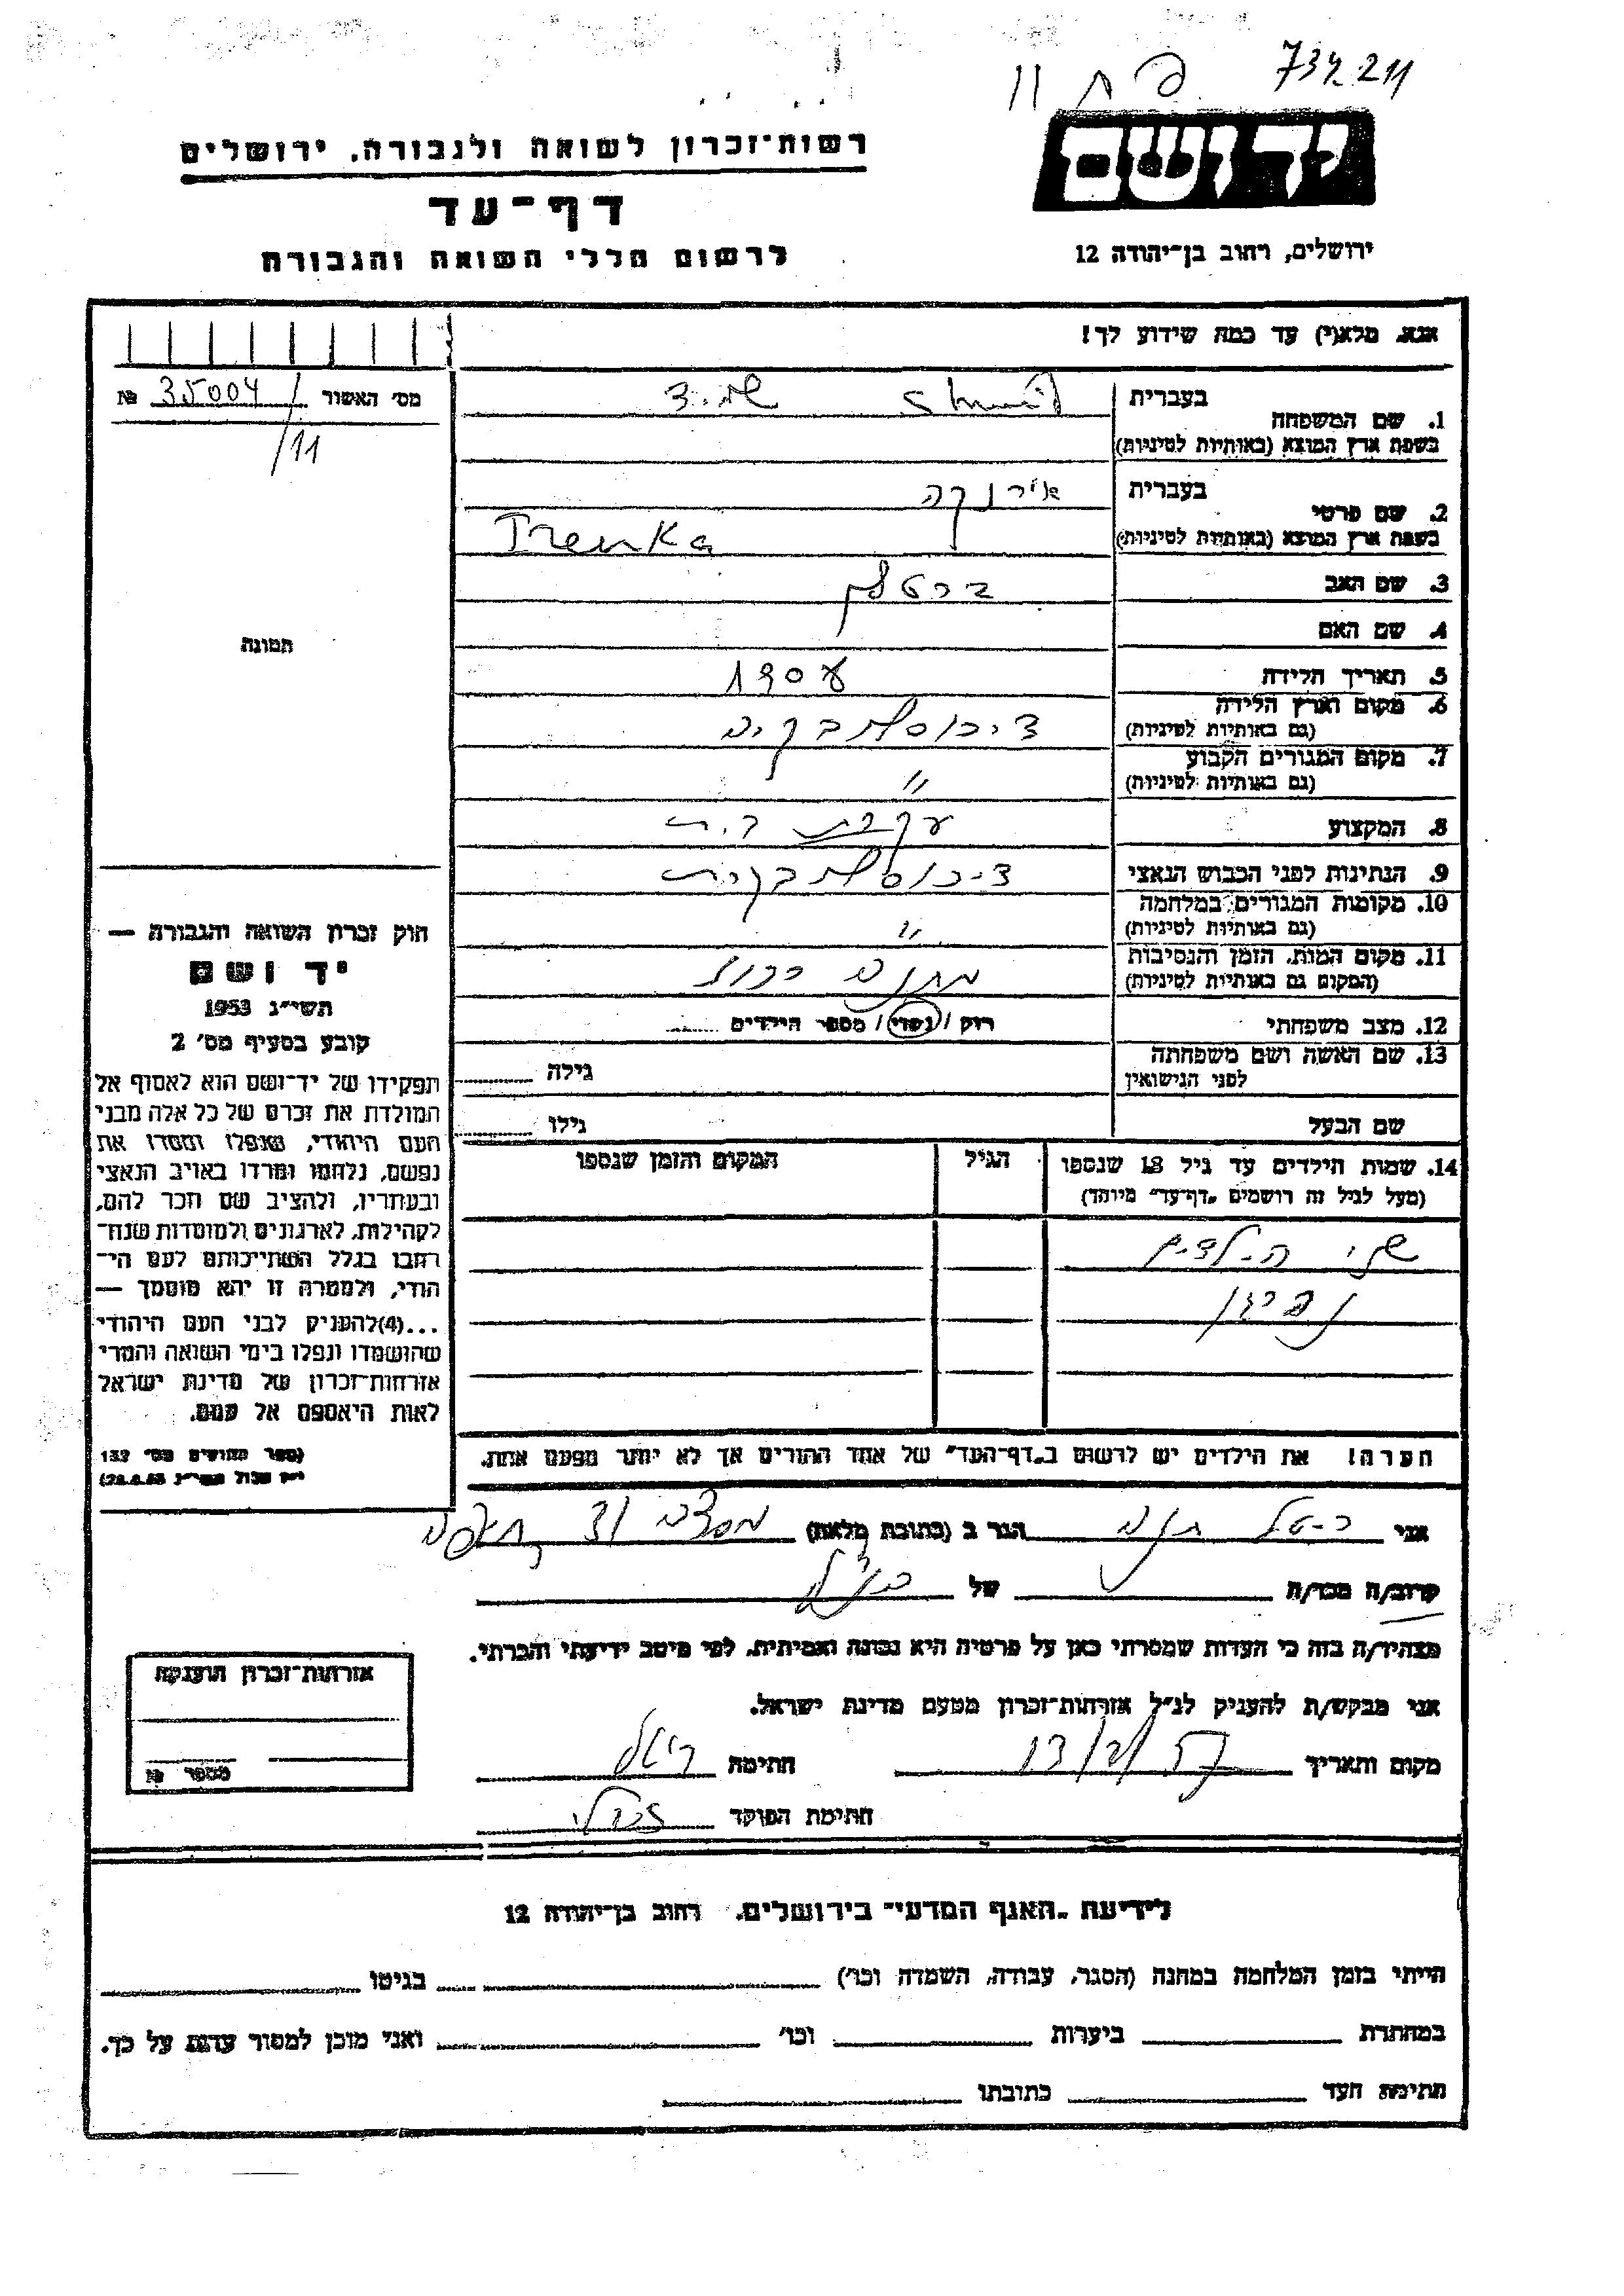 734211
יד ושם
רשות־זכרון לשואה ולגבורה, ירושלים
דף־עד
ירושלים, רחוב בן־יהודה 12
לרשום חללי השואה והגבורה
אנא, מלא(י) עד כמה שידוע לך!
מס׳ האשור № 35004/11
1. שם המשפחה
בעברית שמיד Shmid
בשפת ארץ המוצא (באותיות לטיניות)
2. שם פרטי
בעברית אירנקה
בשפת ארץ המוצא (באותיות לטיניות) Irenka
3. שם האב
4. שם האם
תמונה
5. תאריך הלידה
6. מקום וארץ הלידה
(גם באותיות לטיניות)
7. מקום המגורים הקבוע
(גם באותיות לטיניות) "
8. המקצוע עקרת בית
9. הנתינות לפני הכבוש הנאצי
10. מקומות המגורים במלחמה
(גם באותיות לטיניות) "
11. מקום המות, הזמן והנסיבות
(המקום גם באותיות לטיניות)
12. מצב משפחתי רווק / נשוי / מספר הילדים
13. שם האשה ושם משפחתה
לפני הנישואין גילה
שם הבעל גילו
14. שמות הילדים עד גיל 18 שנספו
(מעל לגיל זה רושמים „דף־עד" מיוחד)
הגיל
המקום והזמן שנספו
שני הילדים
הערה! את הילדים יש לרשום ב„דף־העד" של אחד ההורים אך לא יותר מפעם אחת.
חוק זכרון השואה והגבורה —
יד ושם
תשי״ג 1953
קובע בסעיף מס׳ 2
תפקידו של יד־ושם הוא לאסוף אל
המולדת את זכרם של כל אלה מבני
העם היהודי, שנפלו ומסרו את
נפשם, נלחמו ומרדו באויב הנאצי
ובעוזריו, ולהציב שם וזכר להם,
לקהילות, לארגונים ולמוסדות שנח־
רבו בגלל השתייכותם לעם הי־
הודי, ולמטרה זו יהא מוסמך —
...(4)להעניק לבני העם היהודי
שהושמדו ונפלו בימי השואה והמרי
אזרחות־זכרון של מדינת ישראל
לאות היאספם אל עמם.
(ספר החוקים מס׳ 132
אני הגר ב (כתובת מלאה)
קרוב/ה מכר/ה של הנ״ל
מצהיר/ה בזה כי העדות שמסרתי כאן על פרטיה היא נכונה ואמיתית, לפי מיטב ידיעתי והכרתי.
אני מבקש/ת להעניק לנ״ל אזרחות־זכרון מטעם מדינת ישראל.
מקום ותאריך 13/2/57 חתימה
חתימת הפוקד
אזרחות־זכרון הוענקה
מספר №
לידיעת „האגף המדעי" בירושלים, רחוב בן־יהודה 12
הייתי בזמן המלחמה במחנה (הסגר, עבודה, השמדה וכו׳) בגיטו
במחתרת ביערות וכו׳ ואני מוכן למסור עדות על כך.
חתימת העד כתובתו